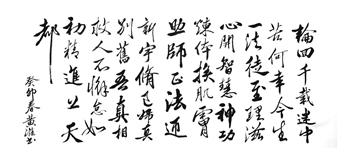 輪回千載迷中
苦何幸今生
一法徒至理滋
心開智慧神功
煉体換肌膚
助師正法迎
新宇脩己歸真
別舊吾真相
救人不懈怠如
初精進上天
都
癸卯春黃淮書